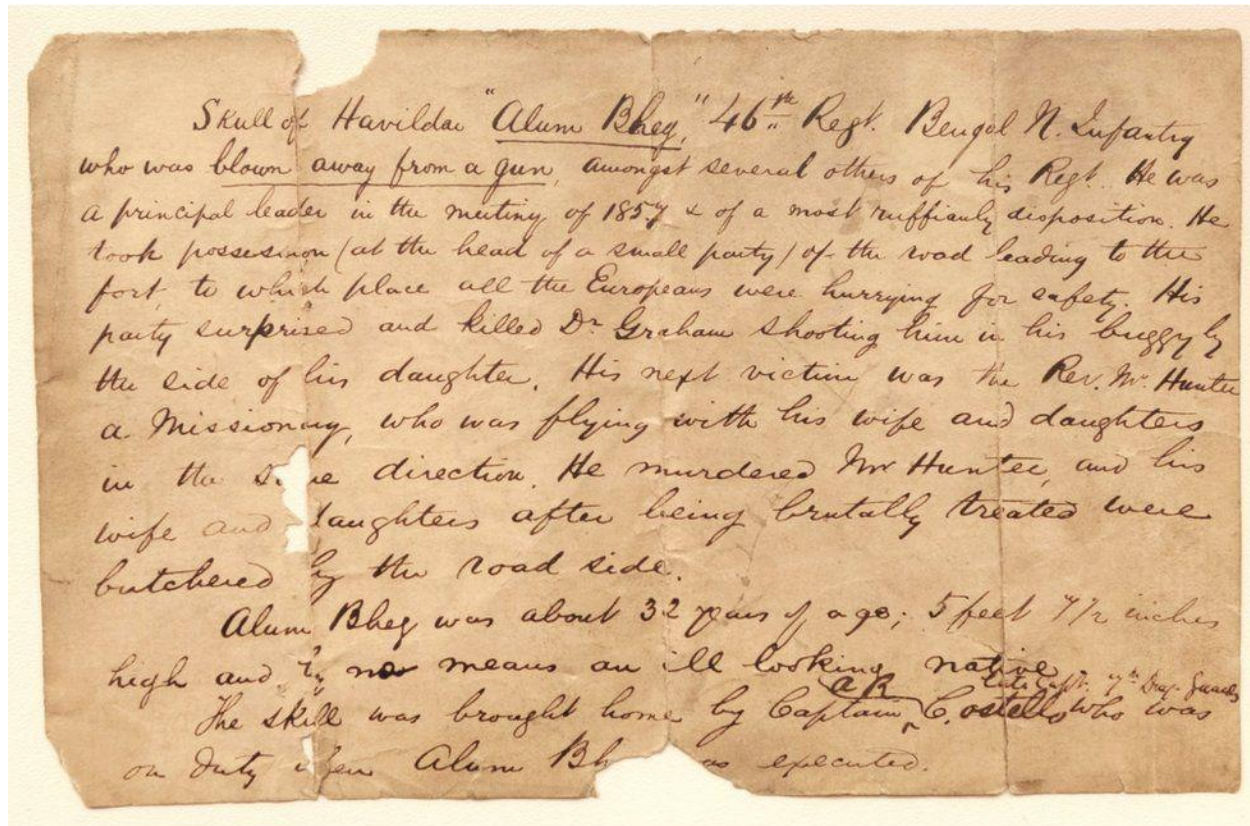 Skull of Havildar "Alum Bheg," 46th Regt. Bengal N. Infantry
who was blown away from a gun, amongst several others of his Regt. He was
a principal leader in the mutiny of 1857 & of a most ruffianly disposition. He
took possession (at the head of a small party) of the road leading to the
fort, to which place all the Europeans were hurrying for safety. His
party surprised and killed Dr. Graham shooting him in his buggy by
the side of his daughter. His next victim was the Rev. Mr. Hunter
a Missionary, who was flying with his wife and daughters
in the same direction. He murdered Mr Hunter, and his
wife and daughters after being brutally treated were
butchered by the road side.
Alum Bheg was about 32 years of age; 5 feet 7 1/2 inches
high and by no means an ill looking native
late Capt. 7th Drag. Guards
AR
The skull was brought home by Captain Costello who was
on duty when Alum Bh as executed.